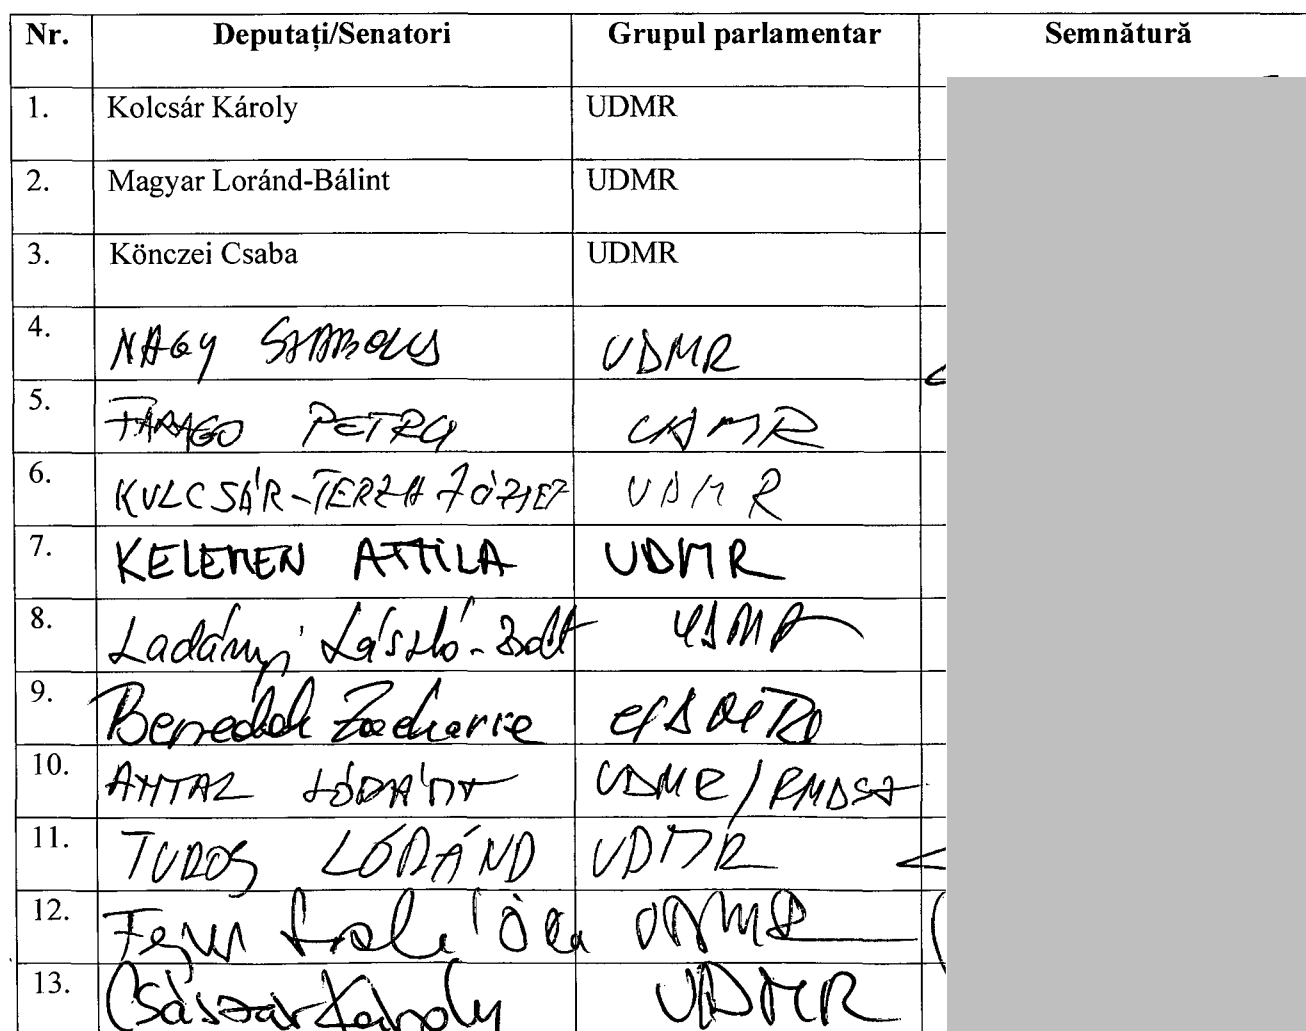 Nr. Deputați/Senatori Grupul parlamentar Semnătură
1. Kolcsár Károly UDMR
2. Magyar Loránd-Bálint UDMR
3. Könczei Csaba UDMR
4. NAGY SZABOLCS UDMR
5. FARAGO PETRU UDMR
6. KULCSÁR-TERZA JÓZSEF UDMR
7. KELEMEN ATTILA UDMR
8. Ladányi László-Zsolt UDMR
9. Benedek Zacharie UDMR
10. ANTAL LÓRÁNT UDMR/RMDSZ
11. TUROS LÓRÁND UDMR
12. UDMR
13. Császár Károly UDMR